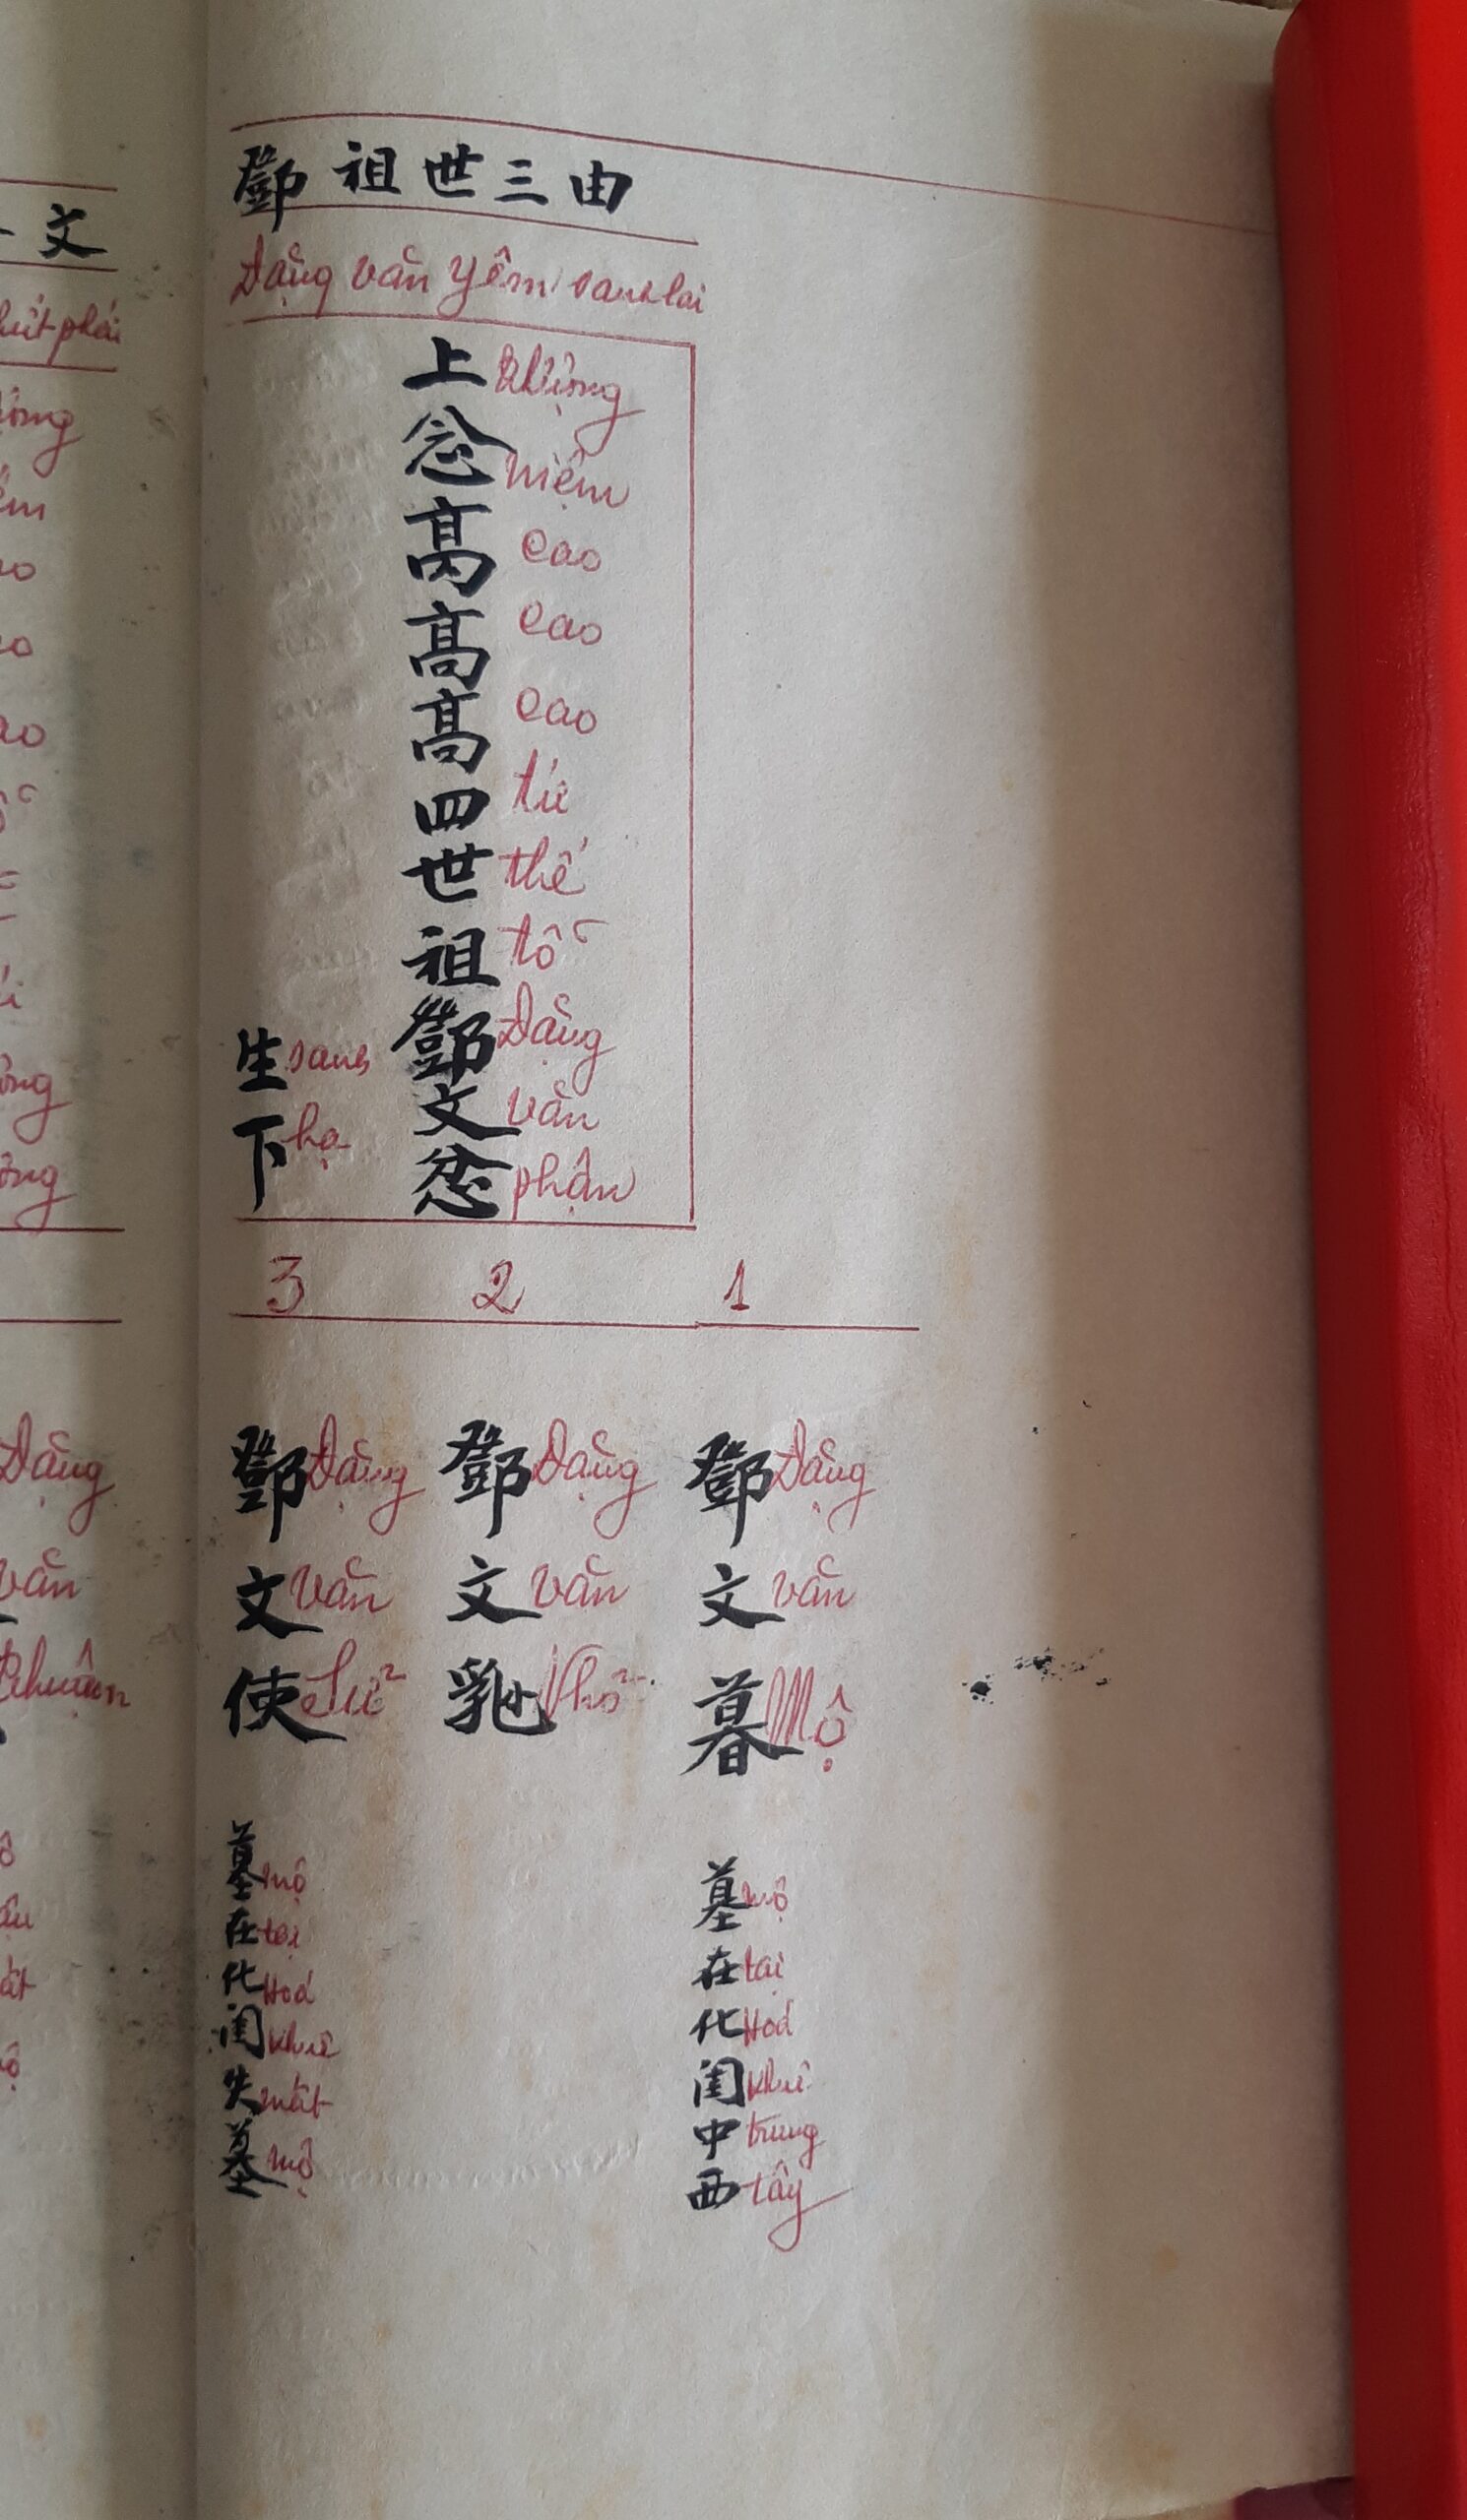 鄧祖世三由
Đặng văn Yêm sanh lai
上念高高高四世祖鄧文忿
thượng niệm cao cao cao tứ thế tổ Đặng văn phận
生下
sanh hạ
1
鄧文暮
Đặng văn Mộ
墓在化閨中西
mộ tại Hoá khuê trung tây
2
鄧文乳
Đặng văn Nhỏ
3
鄧文使
Đặng văn Sử
墓在化閨失墓
mộ tại Hoá khuê mất mộ
文
Đặng
văn